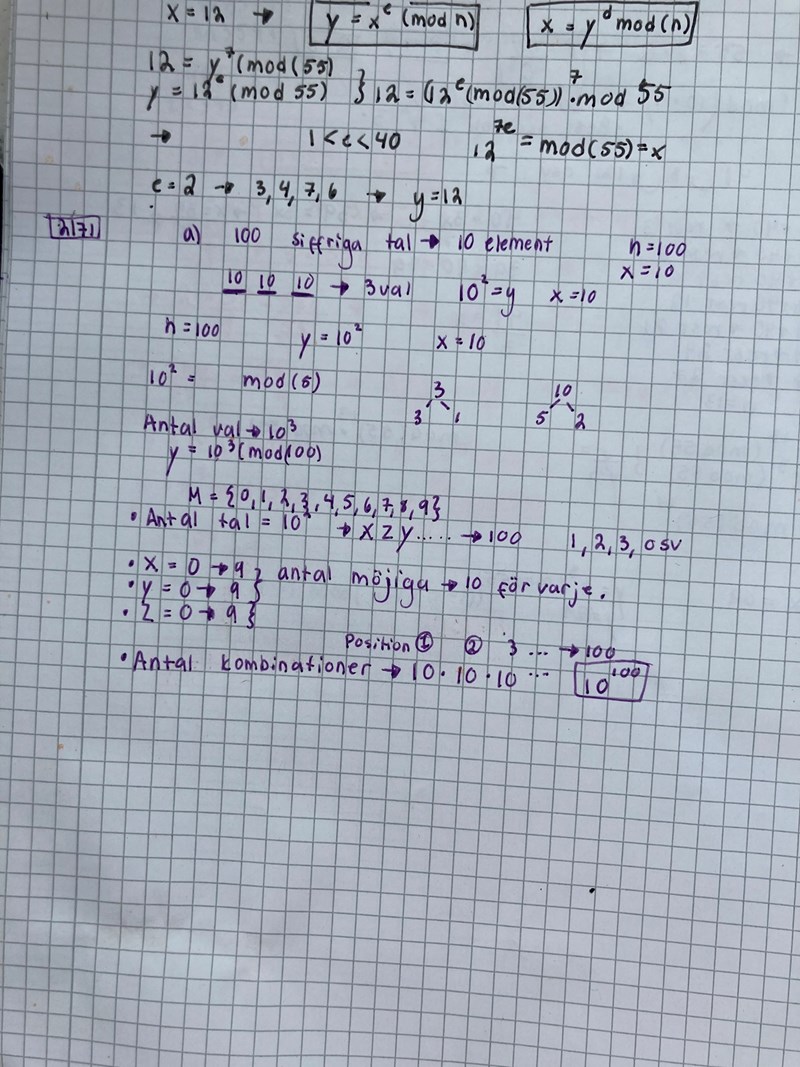 x = 12 → y = x^e (mod n) x = y^d mod (n)
12 = y^7 (mod (55)
y = 12^e (mod 55) } 12 = (12^e (mod(55))^7 · mod 55
→ 1 < e < 40 12^7e = mod(55) = x
e = 2 → 3, 4, 7, 6 → y = 12
2171 a) 100 siffriga tal → 10 element n = 100
x = 10
10 10 10 → 3 val 10^2 = y x = 10
n = 100 y = 10^2 x = 10
10^2 = mod (5)
3 10
3 1 5 2
Antal val → 10^3
y = 10^3 (mod(100)
M = {0, 1, 2, 3, 4, 5, 6, 7, 8, 9}
• Antal tal = 10 → X Z Y ..... → 100 1, 2, 3, osv
• X = 0 → 9 } antal möjiga → 10 för varje.
• Y = 0 → 9 }
• Z = 0 → 9 }
Position ① ② 3 ... → 100
• Antal kombinationer → 10 · 10 · 10 ... 10^100